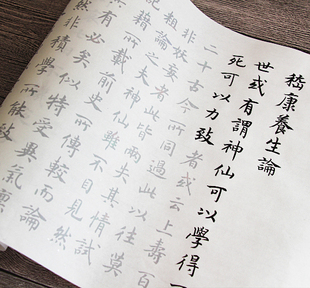 嵇康養生論
世或有謂神仙可以學得
死可以力致者或云上壽百
二十古今所同過此以往莫
非妖妄者此皆兩失其情試
粗論之夫神仙雖不目見然
記籍所載前史所傳較而論
有必矣似特受異氣稟
然非積學所能致